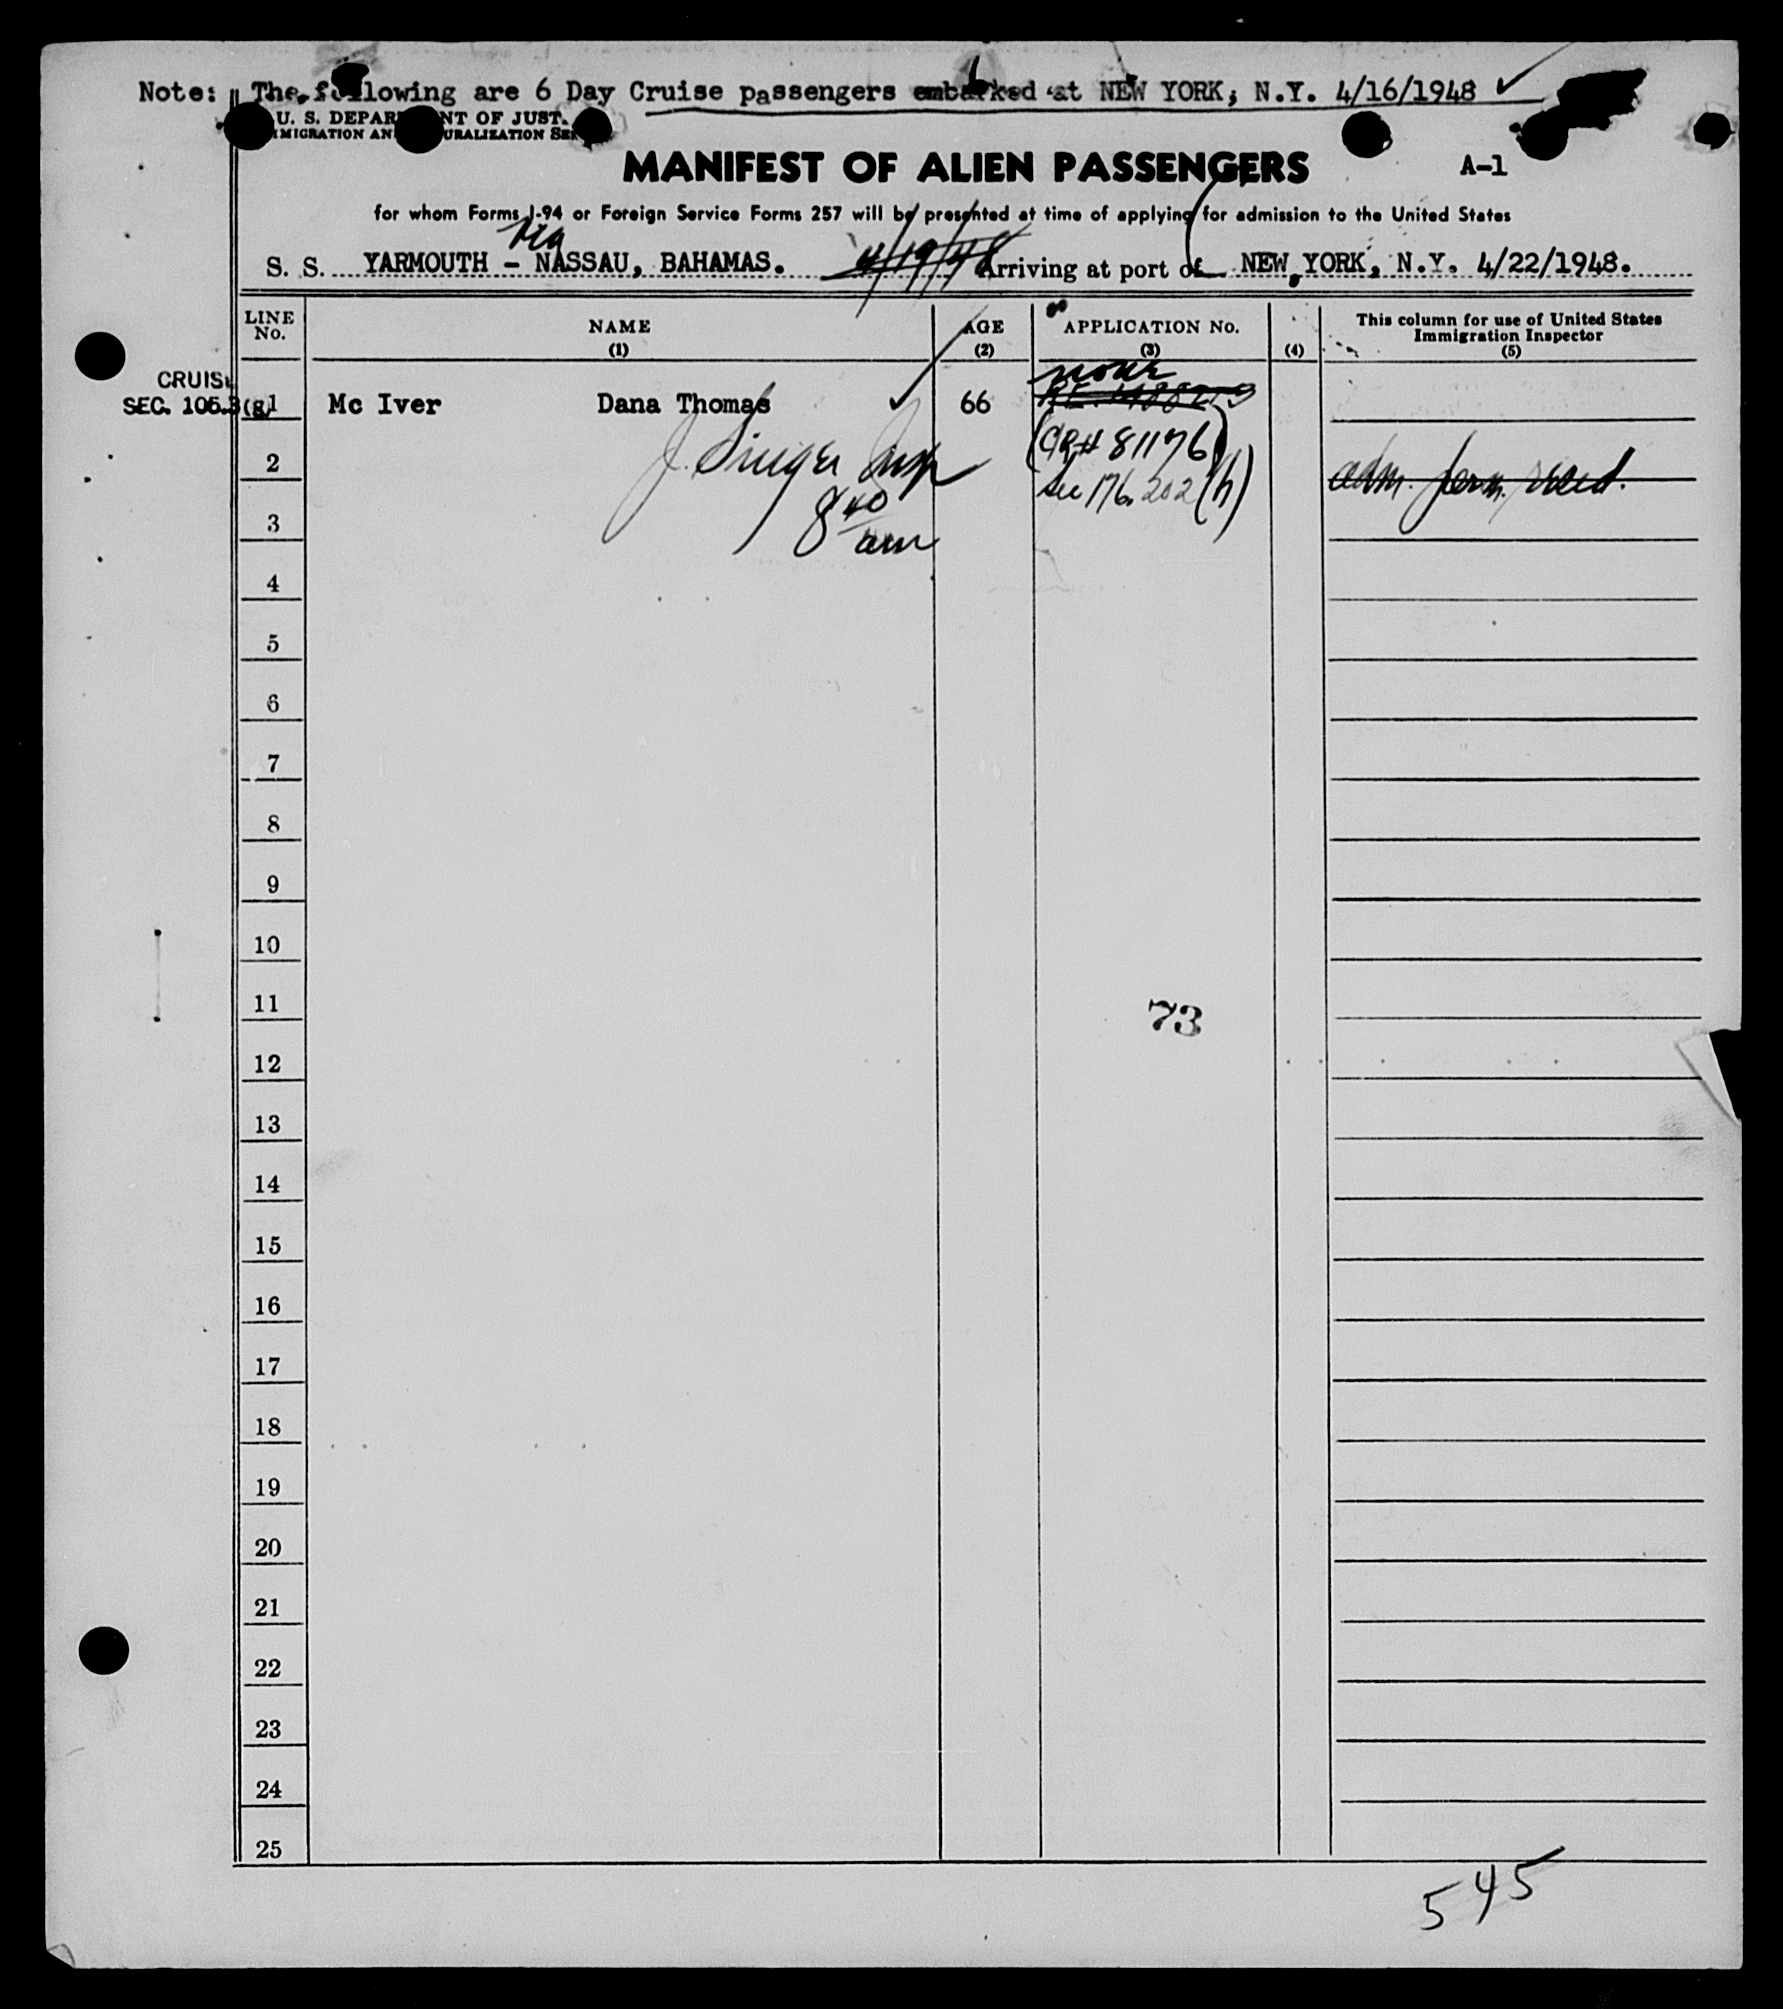 Note: The following are 6 Day Cruise passengers embarked at NEW YORK, N.Y. 4/16/1948 ✓
U. S. DEPAR NT OF JUST.
MIGRATION AN URALIZATION SER
MANIFEST OF ALIEN PASSENGERS A-1
for whom Forms I-94 or Foreign Service Forms 257 will be presented at time of applying for admission to the United States
via
S. S. YARMOUTH - NASSAU, BAHAMAS. 4/19/48 Arriving at port of NEW YORK, N.Y. 4/22/1948.
LINE No. NAME (1) AGE (2) APPLICATION No. (3) (4) This column for use of United States Immigration Inspector (5)
none
CRUISE
SEC. 105.3(g) 1 Mc Iver Dana Thomas ✓ 66
(CR# 81176)
2 J. Singer Insp sec 176.202(h) adm. perm. resid.
3 8 40 am
4
5
6
7
8
9
10
11 73
12
13
14
15
16
17
18
19
20
21
22
23
24
25
545